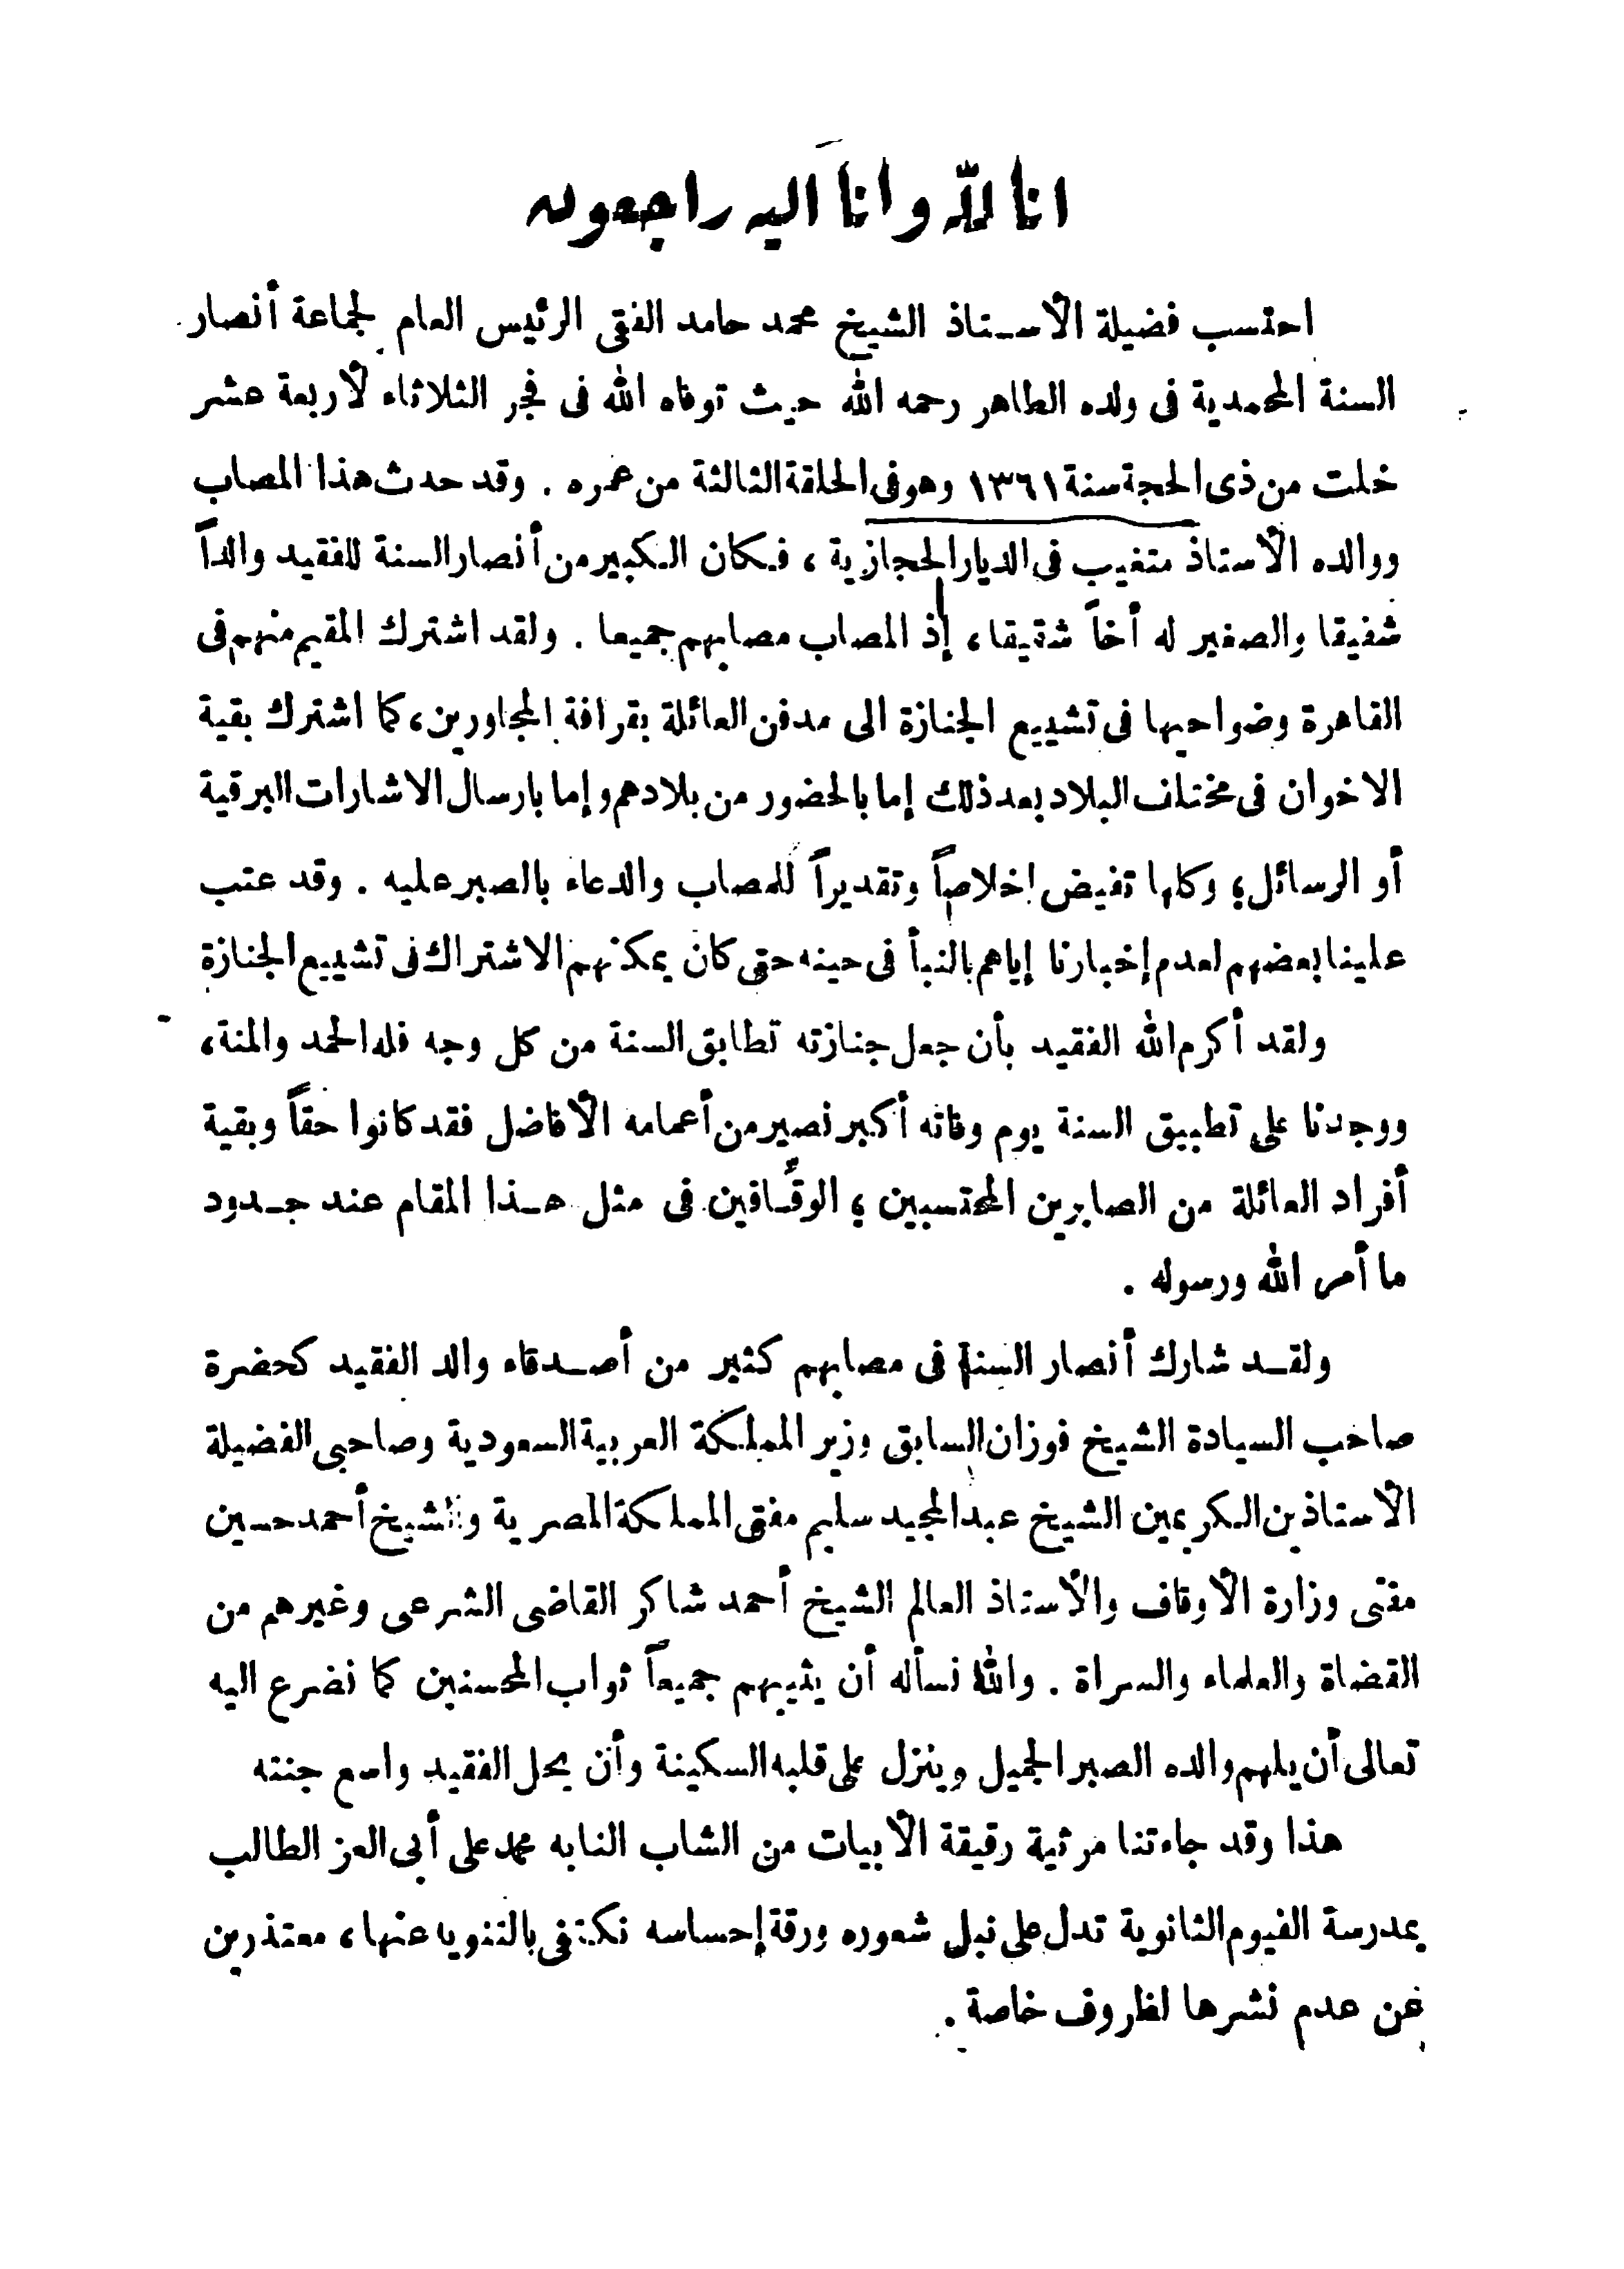 انا لله وانا اليه راجعون
احتسب فضيلة الأستاذ الشيخ محمد حامد الفقى الرئيس العام لجماعة أنصار
السنة المحمدية فى ولده الطاهر رحمه الله حيث توفاه الله فى فجر الثلاثاء لأربعة عشر
خلت من ذى الحجة سنة ١٣٦١ وهو فى الحلقة الثالثة من عمره . وقد حدث هذا المصاب
ووالده الأستاذ متغيب فى الديار الحجازية ، فكان الكبير من أنصار السنة للفقيد والداً
شفيقا والصغير له أخاً شقيقا ، إذ المصاب مصابهم جميعا . ولقد اشترك المقيم منهم فى
القاهرة وضواحيها فى تشييع الجنازة الى مدفن العائلة بقرافة المجاورين ، كما اشترك بقية
الاخوان فى مختلف البلاد بعد ذلك إما بالحضور من بلادهم وإما بارسال الاشارات البرقية
أو الرسائل ؛ وكلها تفيض إخلاصاً وتقديراً للمصاب والدعاء بالصبر عليه . وقد عتب
علينا بعضهم لعدم إخبارنا إياهم بالنبأ فى حينه حتى كان يمكنهم الاشتراك فى تشييع الجنازة
ولقد أكرم الله الفقيد بأن جعل جنازته تطابق السنة من كل وجه فله الحمد والمنة ،
ووجدنا على تطبيق السنة يوم وفاته أكبر نصير من أعمامه الأفاضل فقد كانوا حقاً وبقية
أفراد العائلة من الصابرين المحتسبين ؛ الوقَّافين فى مثل هذا المقام عند حدود
ما أمر الله ورسوله .
ولقد شارك أنصار السنة فى مصابهم كثير من أصدقاء والد الفقيد كحضرة
صاحب السيادة الشيخ فوزان السابق وزير المملكة العربية السعودية وصاحبى الفضيلة
الأستاذين الكريمين الشيخ عبد المجيد سليم مفتى المملكة المصرية والشيخ أحمد حسين
مفتى وزارة الأوقاف والأستاذ العالم الشيخ أحمد شاكر القاضى الشرعى وغيرهم من
القضاة والعلماء والسراة . والله نسأله أن يثيبهم جميعاً ثواب المحسنين كما نضرع اليه
تعالى أن يلهم والده الصبر الجميل وينزل على قلبه السكينة وأن يحل الفقيد واسع جنته
هذا وقد جاءتنا مرثية رقيقة الأبيات من الشاب النابه محمد على أبى العز الطالب
بمدرسة الفيوم الثانوية تدل على نبل شعوره ورقة إحساسه نكتفى بالتنويه عنها ، معتذرين
عن عدم نشرها لظروف خاصة .